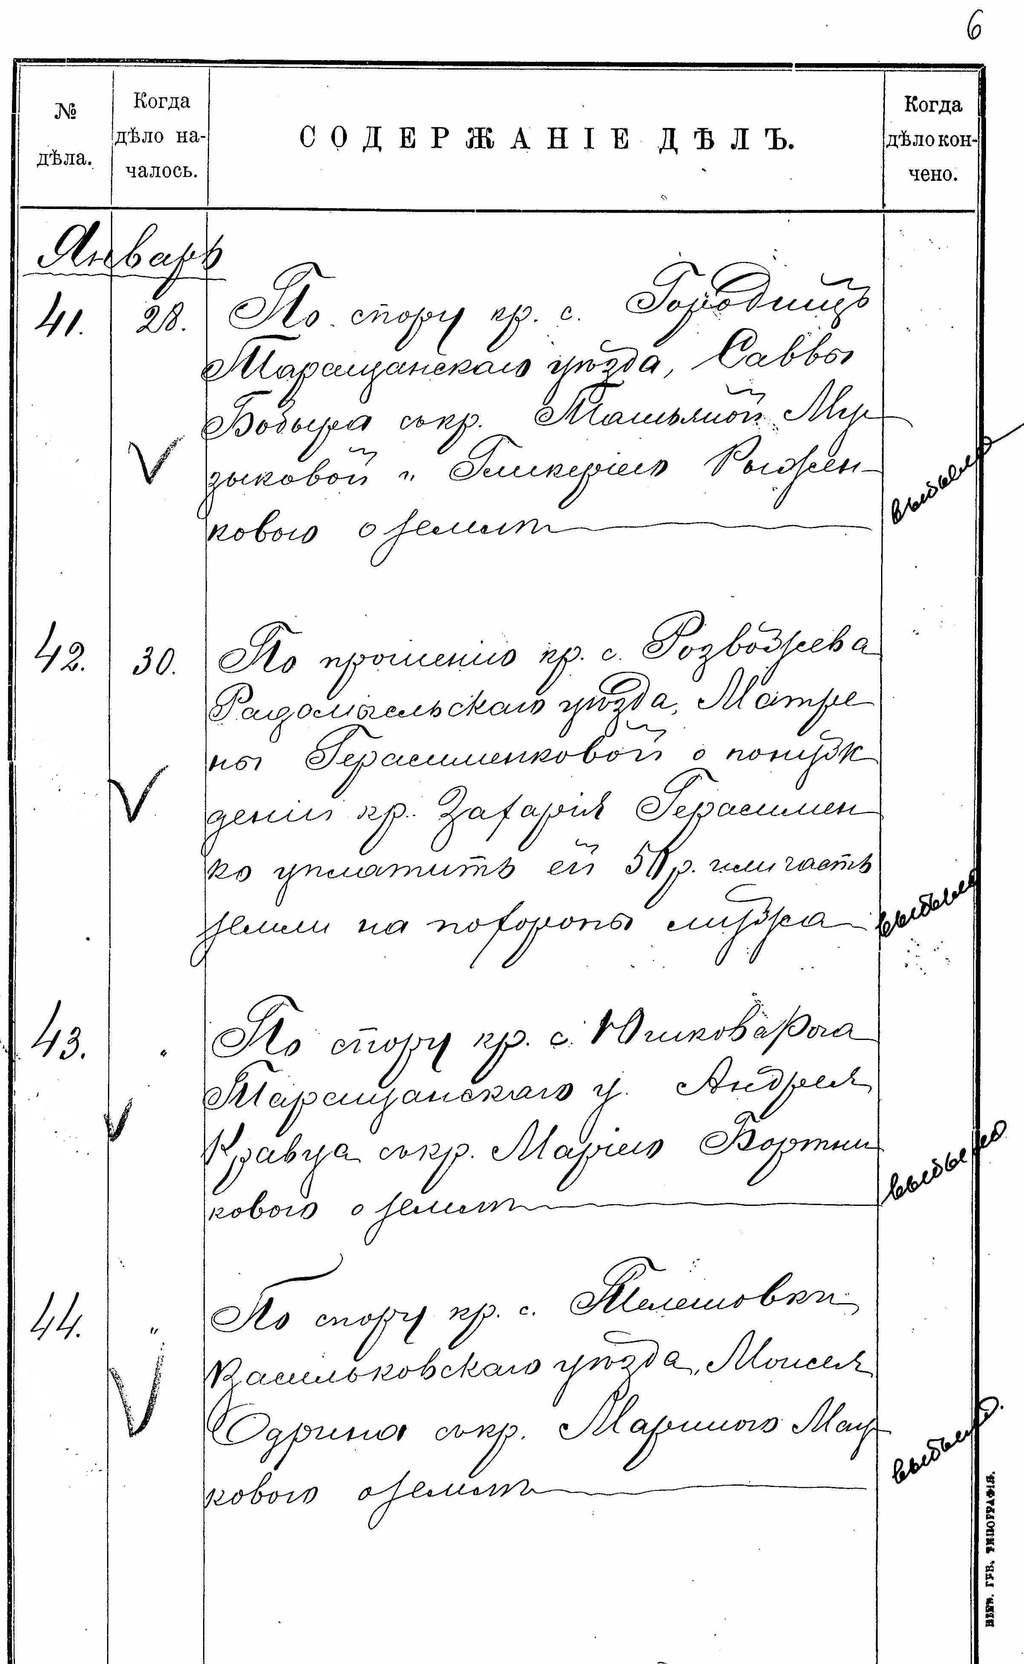 6
№ дѣла.
Когда дѣло началось.
СОДЕРЖАНІЕ ДѢЛЪ.
Когда дѣло кончено.
Январь
41. 28. По спору кр. с. Городищъ
Таращанскаго уѣзда, Саввы
съ кр. Татьяной Му-
зыковой и Гликеріею Рыжен-
ковою о землѣ
выбыло
42. 30. По прошенію кр. с. Розважева
Радомысльскаго уѣзда, Матре
ны Герасименковой о понуж
деніи кр. Захарія Герасимен
ко уплатить ей 50 р. или часть
земли на похороны мужа
выбыло
43. " По спору кр. с. Юшковарога
Таращанскаго у. Андрея
Кравца съ кр. Маріею Бортни
ковою о землѣ
выбыло
44. " По спору кр. с. Телешовки
Васильковскаго уѣзда, Моисея
Одрина съ кр. Мариною
ковою о землѣ
выбыло
КІЕВ. ГУБ. ТИПОГРАФІЯ.